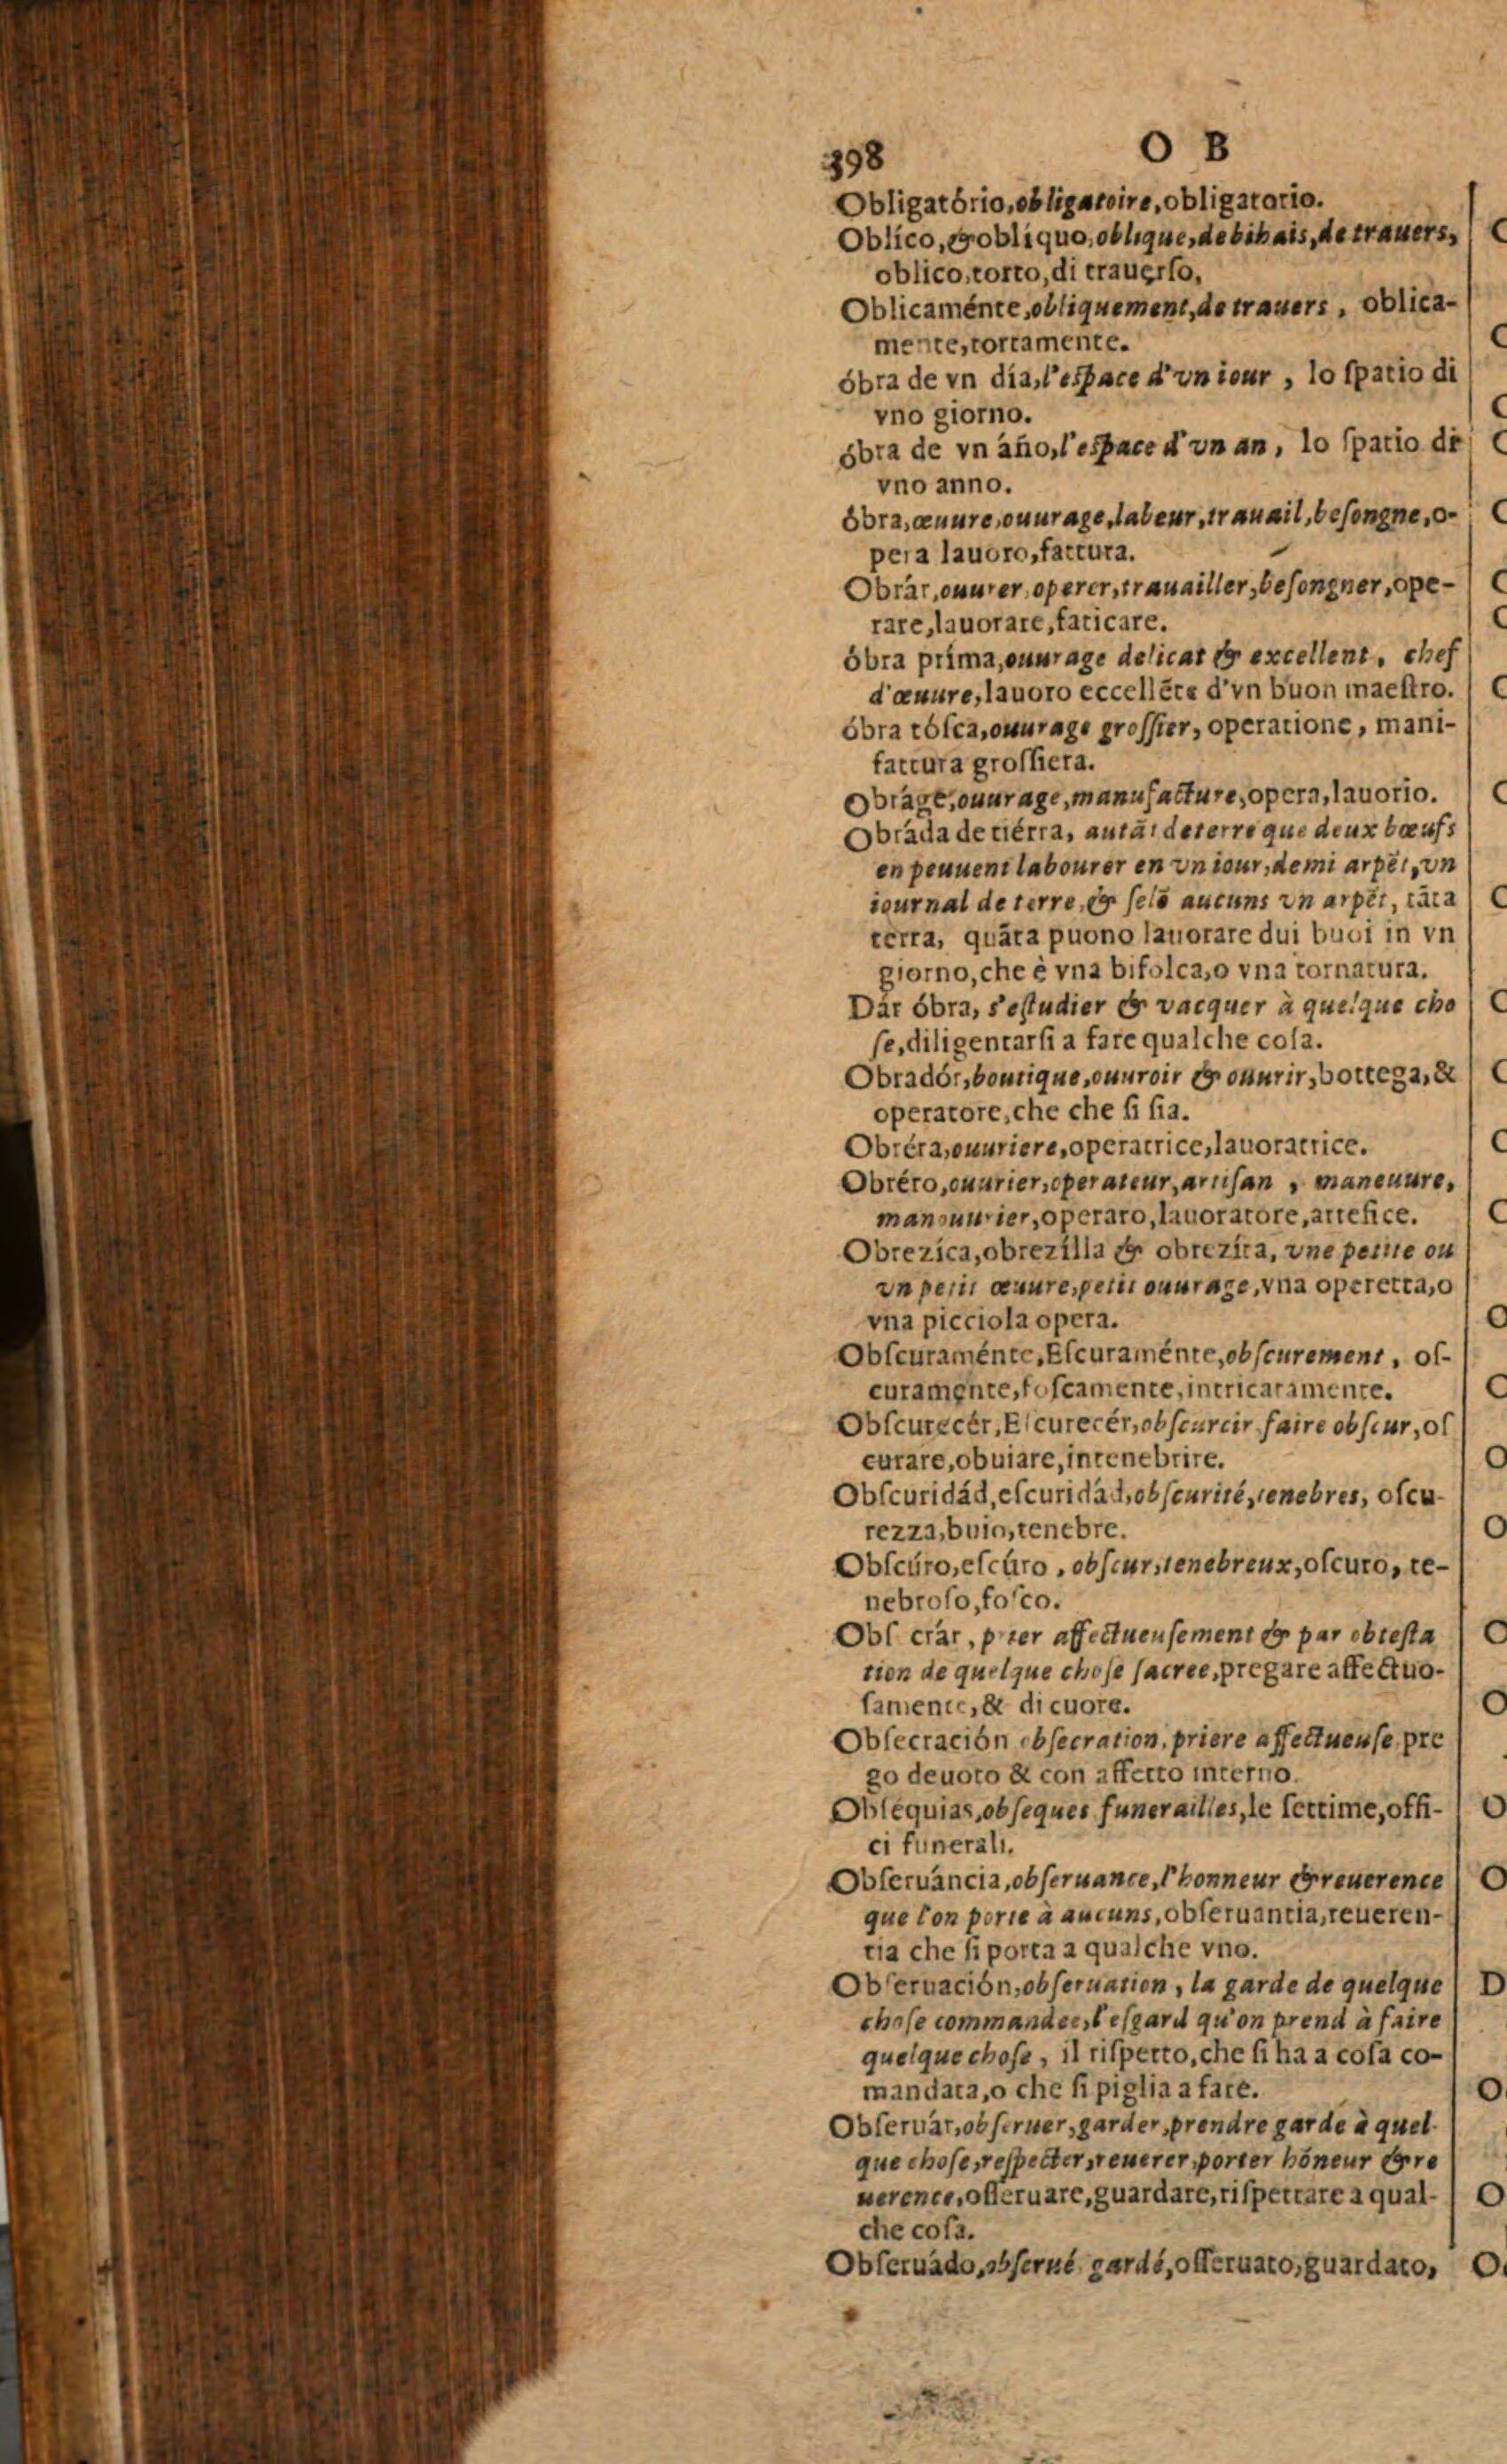 398
O B
Obligatório, obligatoire, obligatorio.
Oblíco, & oblíquo, oblique, de bihais, de trauers,
oblico, torto, di trauerſo,
Oblicaménte, obliquement, de trauers, oblica-
mente, tortamente.
óbra de vn día, l'eſpace d'vn iour, lo ſpatio di
vno giorno.
óbra de vn áño, l'eſpace d'vn an, lo ſpatio di
vno anno.
óbra, œuure, ouurage, labeur, trauail, beſongne, o-
pera lauoro, fattura.
Obrár, ouurer, operer, trauailler, beſongner, ope-
rare, lauorare, faticare.
óbra príma, ouurage delicat & excellent, chef
d'œuure, lauoro eccellẽte d'vn buon maeſtro.
óbra tóſca, ouurage groſſier, operatione, mani-
fattura groſſiera.
Obráge, ouurage, manufacture, opera, lauorio.
Obráda de tiérra, autãt de terre que deux bœufs
en peuuent labourer en vn iour, demi arpẽt, vn
iournal de terre, & ſelõ aucuns vn arpẽt, tãta
terra, quãta puono lauorare dui buoi in vn
giorno, che è vna bifolca, o vna tornatura.
Dár óbra, s'eſtudier & vacquer à quelque cho
ſe, diligentarſi a fare qualche coſa.
Obradór, boutique, ouuroir & ouurir, bottega, &
operatore, che che ſi ſia.
Obréra, ouuriere, operatrice, lauoratrice.
Obréro, ouurier, operateur, artiſan, maneuure,
manouurier, operaro, lauoratore, artefice.
Obrezíca, obrezílla & obrezíta, vne petite ou
vn petit œuure, petit ouurage, vna operetta, o
vna picciola opera.
Obſcuraménte, Eſcuraménte, obſcurement, oſ-
curamente, foſcamente, intricatamente.
Obſcurecér, Eſcurecér, obſcurcir faire obſcur, oſ
curare, obuiare, intenebrire.
Obſcuridád, eſcuridád, obſcurité, tenebres, oſcu-
rezza, buio, tenebre.
Obſcúro, eſcúro, obſcur, tenebreux, oſcuro, te-
nebroſo, foſco.
Obſ crár, prier affectueuſement & par obteſta
tion de quelque choſe ſacree, pregare affectuo-
ſamente, & di cuore.
Obſecración obſecration, priere affectueuſe, pre
go deuoto & con affetto interno.
Obſéquias, obſeques funerailles, le ſettime, offi-
ci funerali.
Obſeruáncia, obſeruance, l'honneur & reuerence
que l'on porte à aucuns, obſeruantia, reueren-
tia che ſi porta a qualche vno.
Obſeruación, obſeruation, la garde de quelque
choſe commandee, l'eſgard qu'on prend à faire
quelque choſe, il riſpetto, che ſi ha a coſa co-
mandata, o che ſi piglia a fare.
Obſeruár, obſeruer, garder, prendre garde à quel
que choſe, reſpecter, reuerer, porter hõneur & re
uerence, oſſeruare, guardare, riſpettare a qual-
che coſa.
Obſeruádo, obſerué gardé, oſſeruato, guardato,